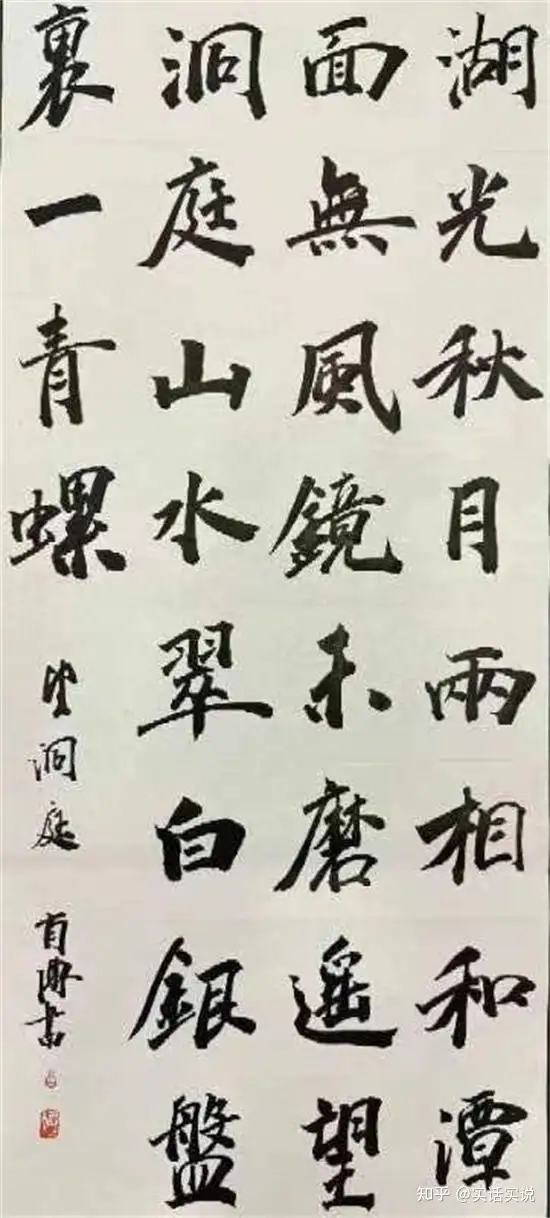 湖光秋月兩相和潭
面無風鏡未磨遙望
洞庭山水翠白銀盤
裏一青螺
望洞庭
書
知乎 @实话实说